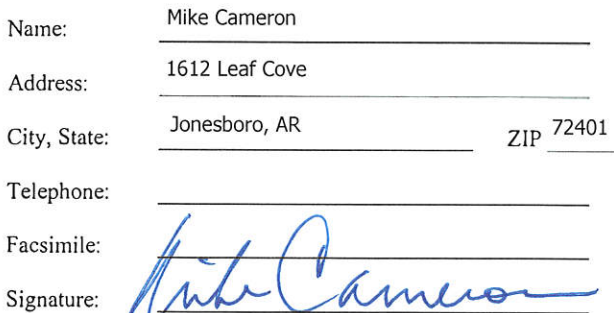 Name: Mike Cameron
Address: 1612 Leaf Cove
City, State: Jonesboro, AR ZIP 72401
Telephone:
Facsimile:
Signature: Mike Cameron